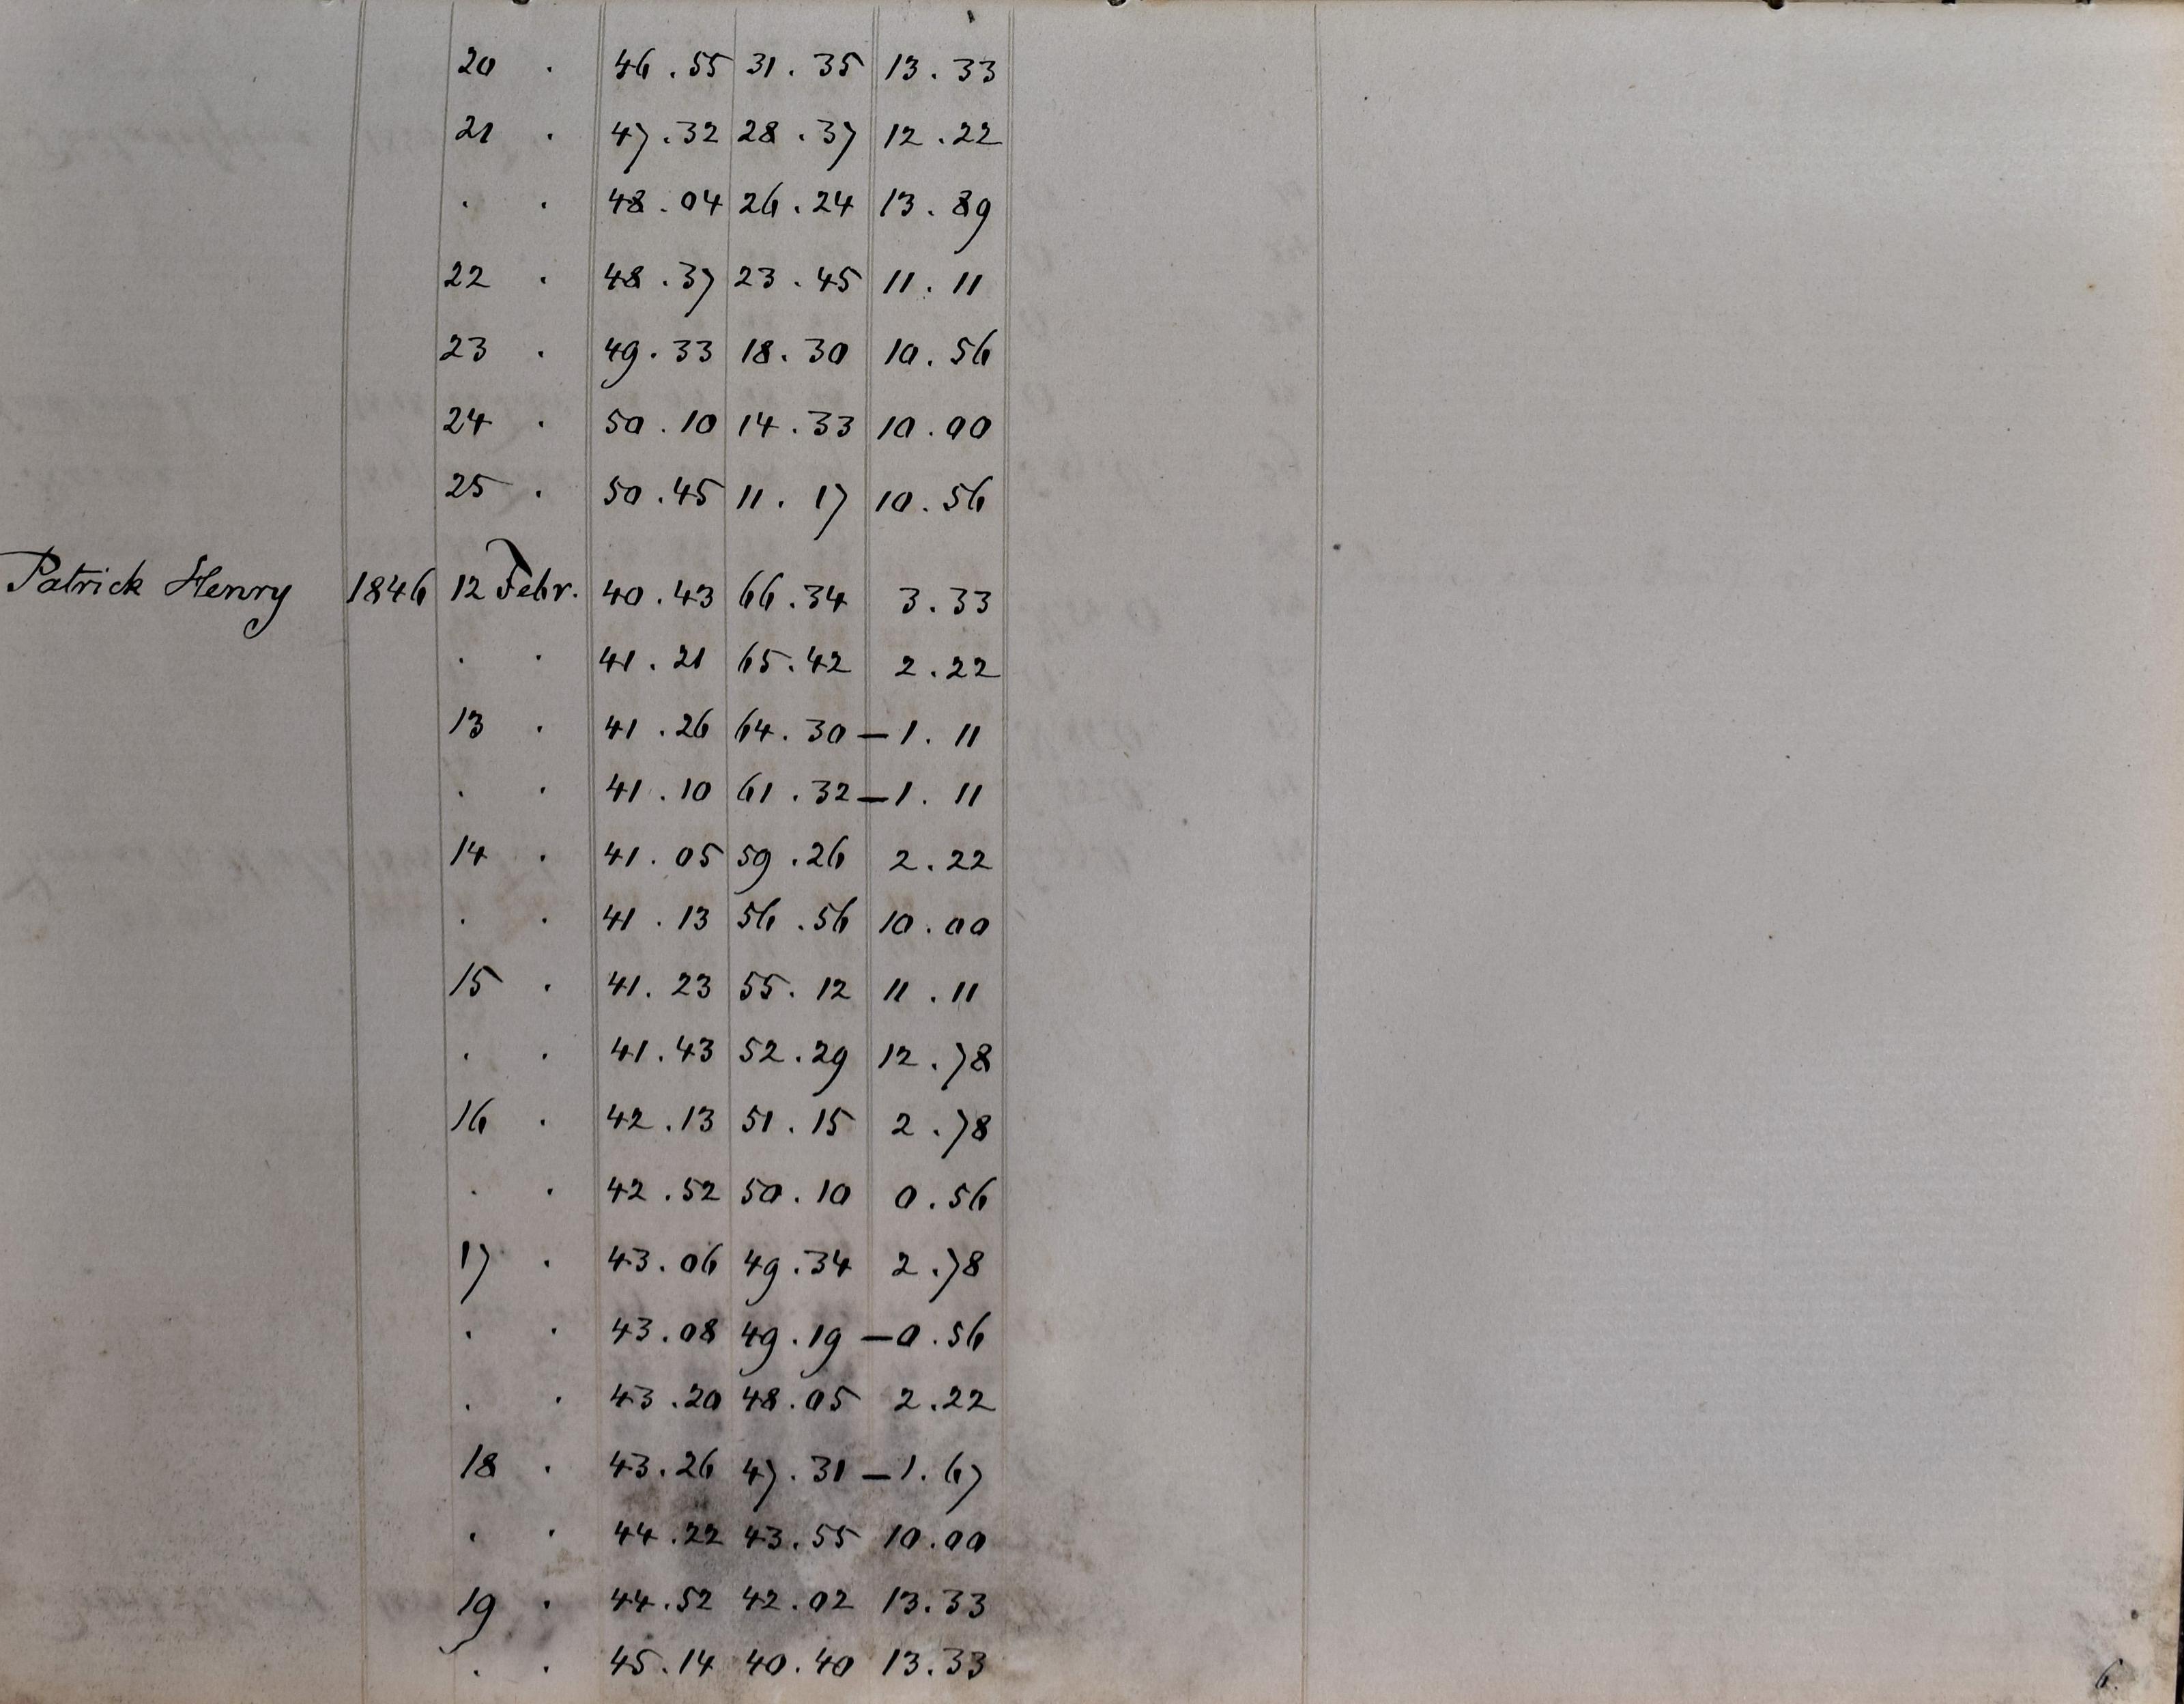 20 . 46.55 31.35 13.33
21 . 47.32 28.37 12.22
. . 48.04 26.24 13.89
22 . 48.37 23.45 11.11
23 . 49.33 18.30 10.56
24 . 50.10 14.33 10.00
25 . 50.45 11.17 10.56
Patrick Henry 1846 12 Febr. 40.43 66.34 3.33
. . 41.21 65.42 2.22
13 . 41.26 64.30 –1.11
. . 41.10 61.32 –1.11
14 . 41.05 59.26 2.22
. . 41.13 56.56 10.00
15 . 41.23 55.12 11.11
. . 41.43 52.29 12.78
16 . 42.13 51.15 2.78
. . 42.52 50.10 0.56
17 . 43.06 49.34 2.78
. . 43.08 49.19 –0.56
. . 43.20 48.05 2.22
18 . 43.26 47.31 –1.67
. . 44.22 43.55 10.00
19 . 44.52 42.02 13.33
. . 45.14 40.40 13.33
6.